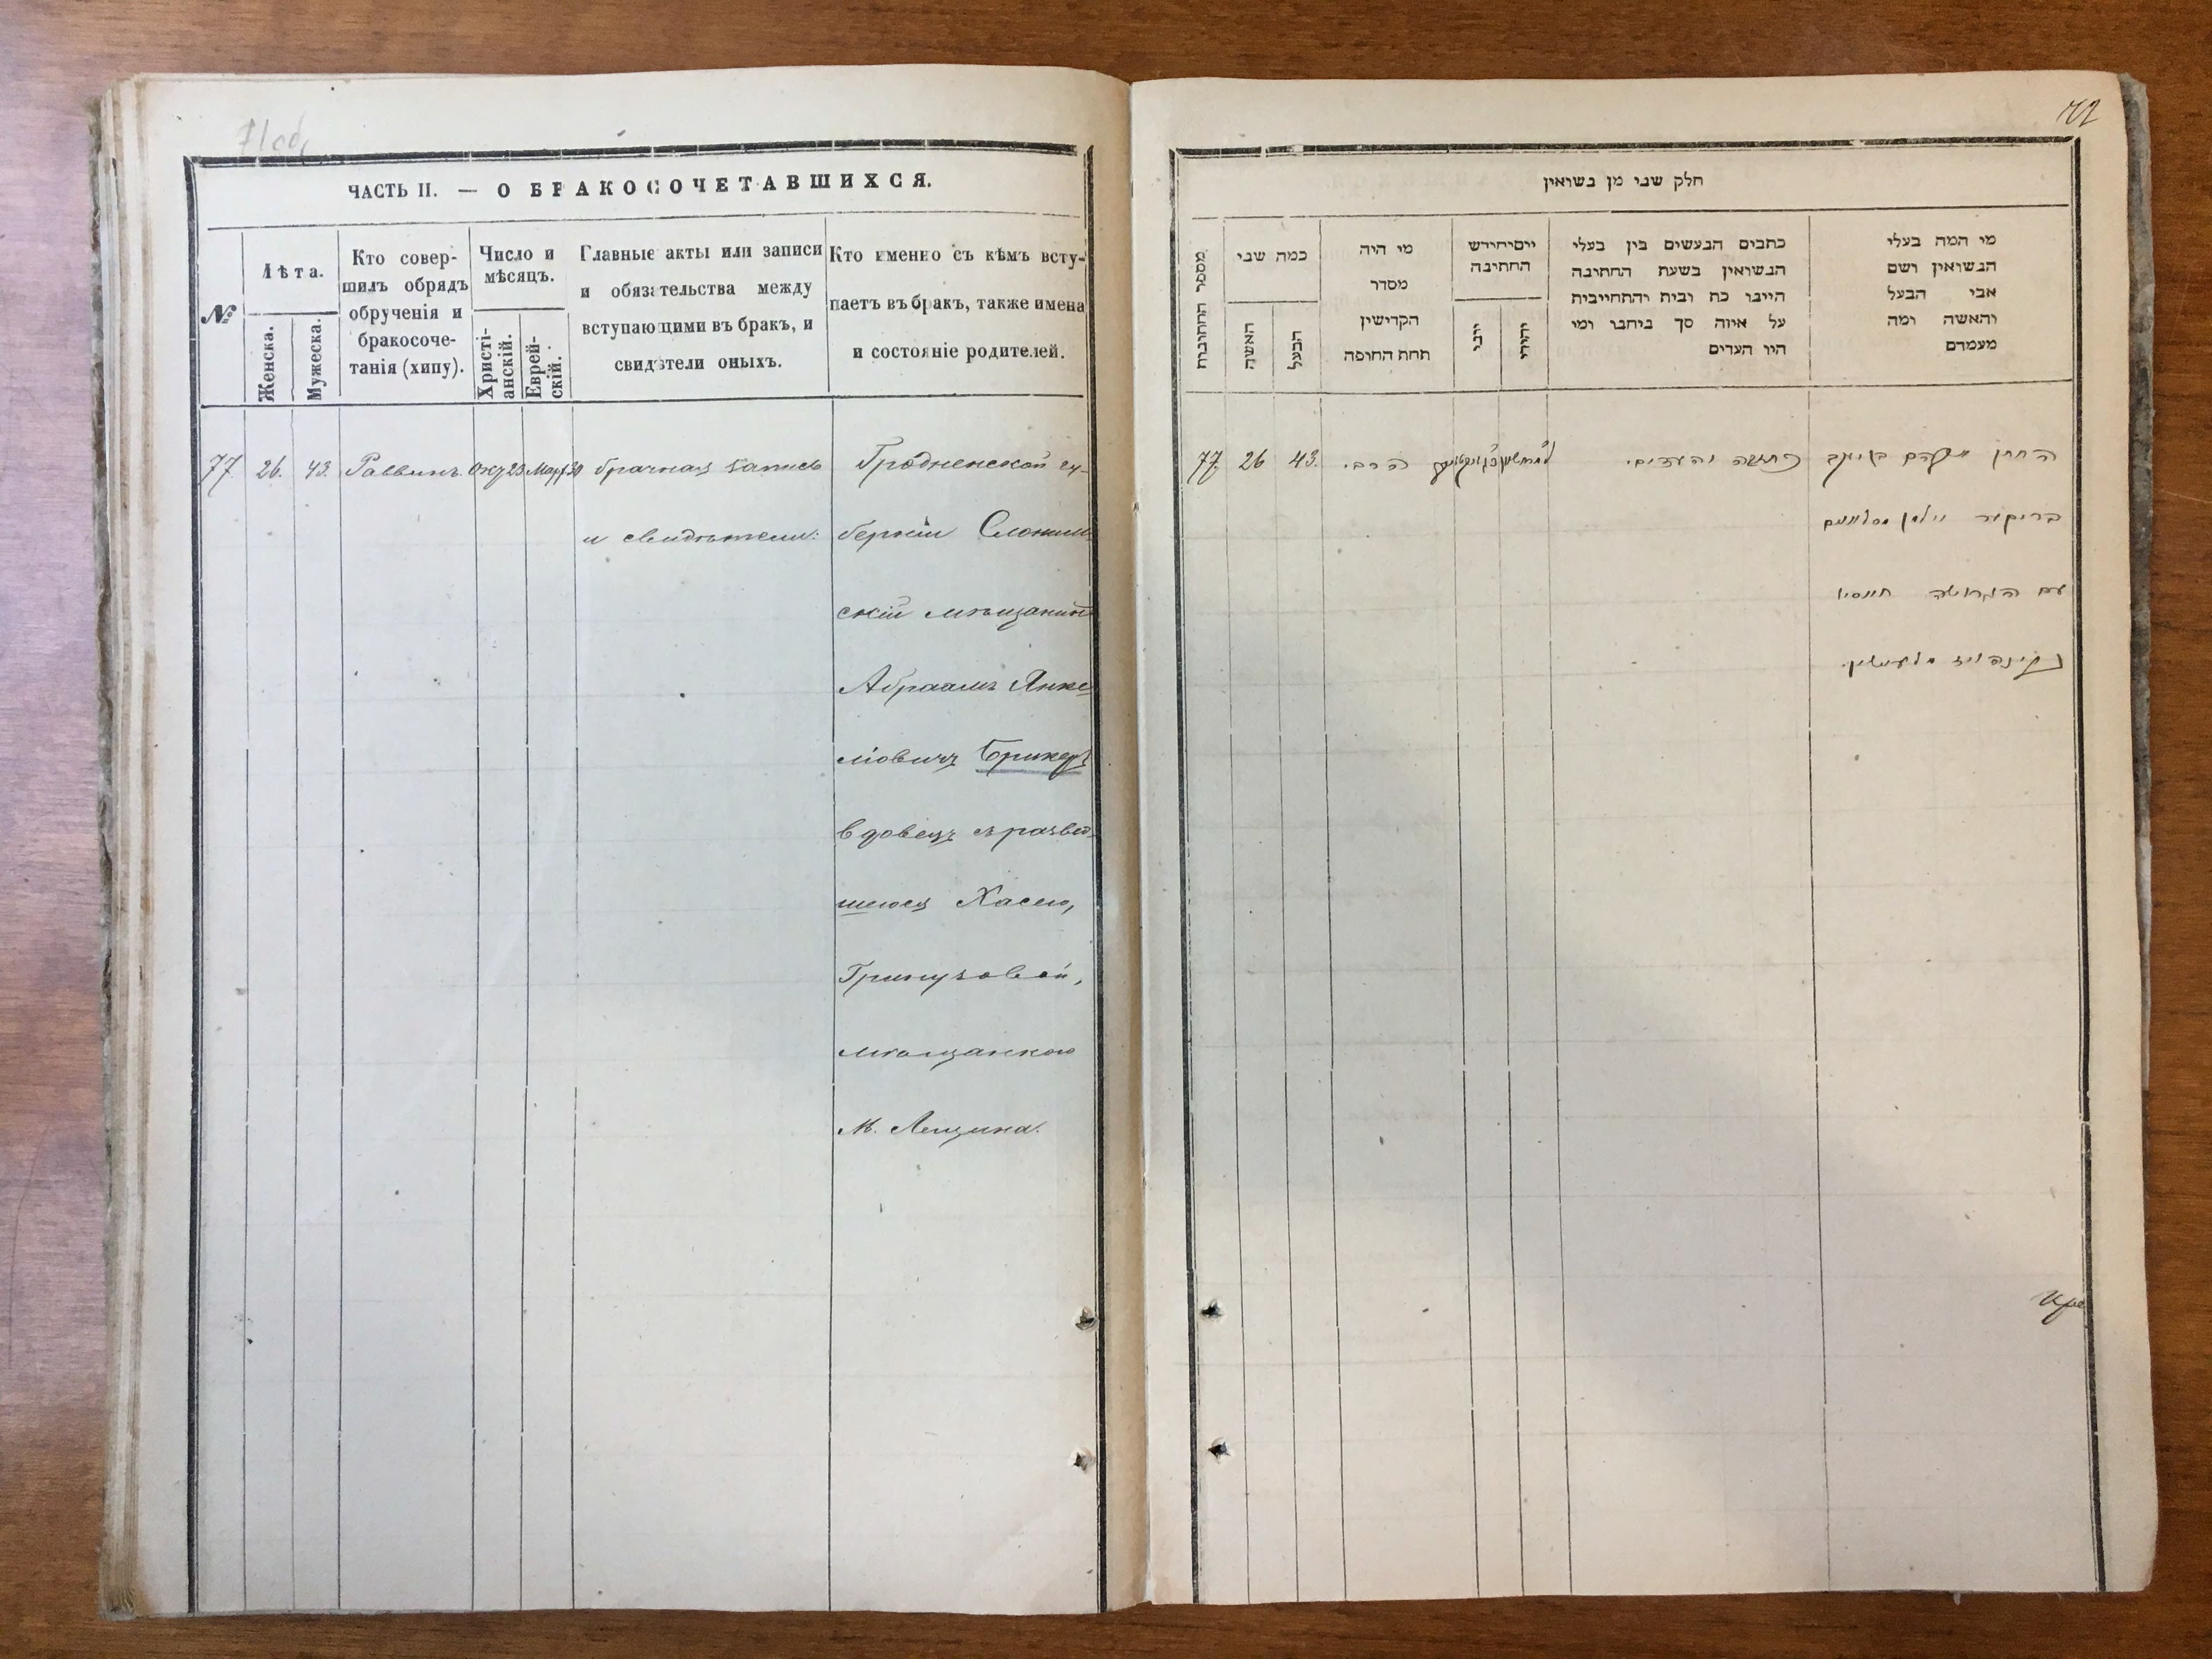 ЧАСТЬ II. — О БРАКОСОЧЕТАВШИХСЯ.
№
Лѣта.
Женска.
Мужеска.
Кто совер-
шилъ обрядъ
обрученія и
бракосоче-
танія (хипу).
Число и
мѣсяцъ.
Христі-
анскій.
Еврей-
скій.
Главные акты или записи
и обязательства между
вступающими въ бракъ, и
свидѣтели оныхъ.
Кто именно съ кѣмъ всту-
паетъ въ бракъ, также имена
и состояніе родителей.
77 26. 43. Раввинъ. Окт 23 брачная запись
и свидѣтели:
Гродненской гу-
берніи Слоним-
скій мѣщанинъ
Абраамъ Янке
ліовичъ Брикеръ
вдовецъ съ развед-
шеюся Хасею,
мѣщанкою
м.
72
חלק שני מן נשואין
מספר החתונות
כמה שני
האשה
הבעל
מי היה
מסדר
הקדישין
תחת החופה
יום וחודש
החתונה
יוני
יהודי
כתבים הנעשים בין בעלי
הנשואין בשעת החתונה
היינו כת ובית והתחייבות
על איזה סך ביחבו ומי
היו העדים
מי המה בעלי
הנשואין ושם
אבי הבעל
והאשה ומה
מעמדם
77. 26 43. הרב.
כתובה והעדים.
החתן אברהם בן יעקב
בריקער
עם הגרושה